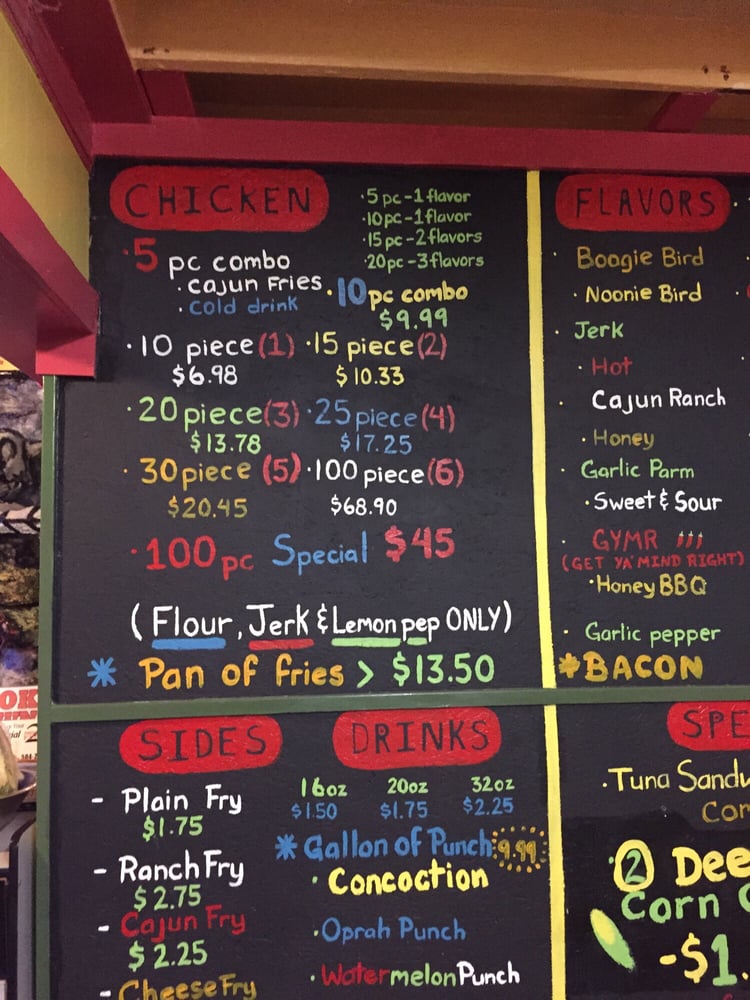 CHICKEN
·5pc-1flavor
·10pc-1flavor
·15pc-2flavors
·20pc-3flavors
·5 pc combo
·cajun Fries
·cold drink
·10pc combo
$9.99
·10 piece(1) ·15 piece(2)
$6.98 $10.33
·20piece(3) ·25piece(4)
$13.78 $17.25
·30piece (5) ·100piece(6)
$20.45 $68.90
·100pc Special $45
(Flour, Jerk & Lemon pep ONLY)
* Pan of fries > $13.50
FLAVORS
· Boogie Bird
· Noonie Bird
· Jerk
· Hot
· Cajun Ranch
· Honey
· Garlic Parm
· Sweet & Sour
· GYMR
(GET YA' MIND RIGHT)
·Honey BBQ
· Garlic pepper
*BACON
SIDES
- Plain Fry
$1.75
- Ranch Fry
$2.75
- Cajun Fry
$2.25
- Cheese Fry
DRINKS
16oz 20oz 32oz
$1.50 $1.75 $2.25
* Gallon of Punch 9.99
· Concoction
·Oprah Punch
·Watermelon Punch
SPE
·Tuna Sandw
Cor
·2 Dee
Corn
-$1.